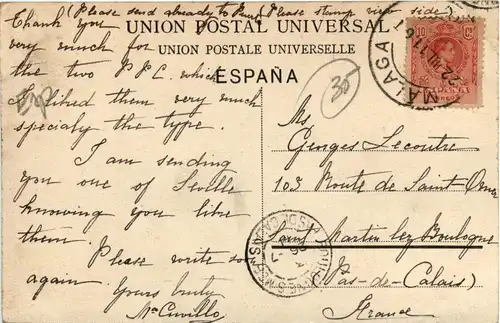 (Please send already to Paris) (Please stamp view side)
Thank you
very much for
the two P.P.C. which
I liked them very much
specialy the type.
I am sending
you one of Seville
knowing you like
them.
Please write soon
again.
Yours truly
UNION POSTAL UNIVERSAL
UNION POSTALE UNIVERSELLE
ESPAÑA
35
MALAGA
Georges Lecoutre
103 Route de Saint-Omer
Martin lez Boulogne
(Pas-de-Calais)
France